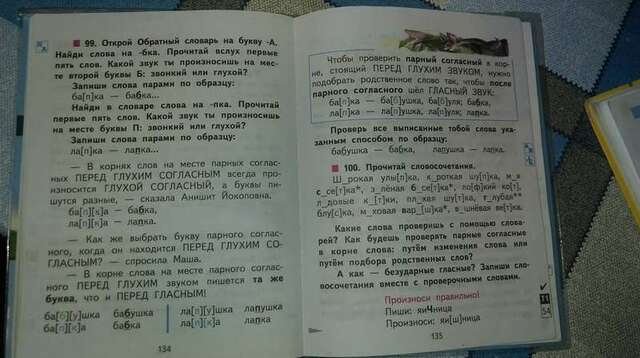 99. Открой Обратный словарь на букву -А.
Найди слова на -бка. Прочитай вслух первые
пять слов. Какой звук ты произносишь на мес-
те второй буквы Б: звонкий или глухой?
Запиши слова парами по образцу:
ба[п]ка — бабка...
Найди в словаре слова на -пка. Прочитай
первые пять слов. Какой звук ты произносишь
на месте буквы П: звонкий или глухой?
Запиши слова парами по образцу:
ла[п]ка — лапка...
— В корнях слов на месте парных соглас-
ных ПЕРЕД ГЛУХИМ СОГЛАСНЫМ всегда про-
износится ГЛУХОЙ СОГЛАСНЫЙ, а буквы пи-
шутся разные, — сказала Анишит Йокоповна.
ба[п][к]а — бабка,
ла[п][к]а — лапка.
— Как же выбрать букву парного соглас-
ного, когда он находится ПЕРЕД ГЛУХИМ СО-
ГЛАСНЫМ? — спросила Маша.
— В корне слова на месте парного соглас-
ного ПЕРЕД ГЛУХИМ звуком пишется та же
буква, что и ПЕРЕД ГЛАСНЫМ!
ба[б][у]шка бабушка
ба[п][к]а бабка
ла[п][у]шка лапушка
ла[п][к]а лапка
134
Чтобы проверить парный согласный в кор-
не, стоящий ПЕРЕД ГЛУХИМ ЗВУКОМ, нужно
подобрать родственное слово так, чтобы после
парного согласного шёл ГЛАСНЫЙ ЗВУК:
ба[п]ка — ба[б]ушка, ба[б]уля; бабка,
ла[п]ка — ла[п]ушка, ла[п]уля; лапка.
Проверь все выписанные тобой слова ука-
занным способом по образцу:
бабушка — бабка, лапушка — лапка.
100. Прочитай словосочетания.
Ш_рокая улы[п]ка, к_роткая шу[п]ка, м_я
с_се[т]ка*, з_лёная б_се[т]ка*, ло[ф]кий ко[т],
л_довые к_[т]ки, пл_хая шу[т]ка, г_лубая**
блу[с]ка, м_ховая вар_[ш]ка*, в_шнёвая ве[т]ка.
Какие слова проверишь с помощью слова-
рей? Как будешь проверять парные согласные
в корне слова: путём изменения слова или
путём подбора родственных слов?
А как — безударные гласные? Запиши сло-
восочетания вместе с проверочными словами.
Произноси правильно!
Пиши: яиЧница
Произноси: яи[ш]ница
Т1
54
135